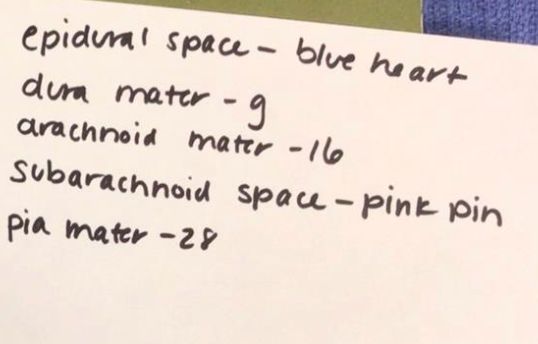 epidural space - blue heart
dura mater - 9
arachnoid mater - 16
subarachnoid space - pink pin
pia mater - 28